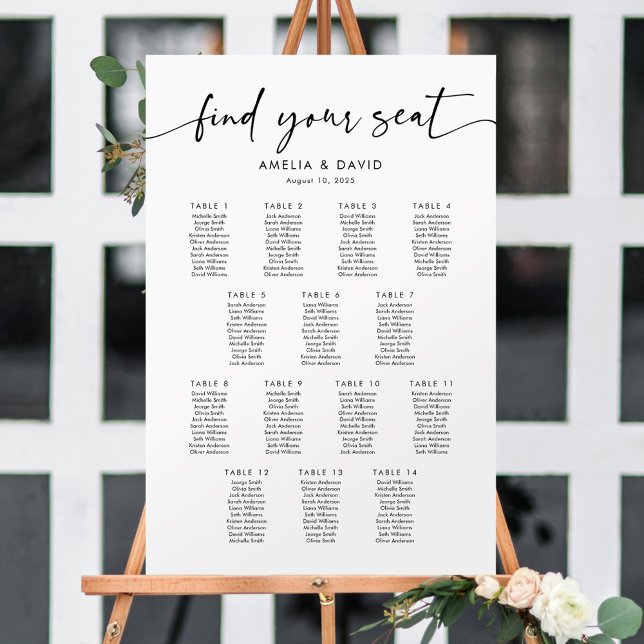 find your seat
AMELIA & DAVID
August 10, 2025
TABLE 1
Michelle Smith
Jeorge Smith
Olivia Smith
Kristen Anderson
Oliver Anderson
Jack Anderson
Sarah Anderson
Liana Williams
Seth Williams
David Williams
TABLE 2
Jack Anderson
Sarah Anderson
Liana Williams
Seth Williams
David Williams
Michelle Smith
Jeorge Smith
Olivia Smith
Kristen Anderson
Oliver Anderson
TABLE 3
David Williams
Michelle Smith
Jeorge Smith
Olivia Smith
Kristen Anderson
Oliver Anderson
Jack Anderson
Sarah Anderson
Liana Williams
Seth Williams
TABLE 4
Jack Anderson
Sarah Anderson
Liana Williams
Seth Williams
Kristen Anderson
Oliver Anderson
David Williams
Michelle Smith
Jeorge Smith
Olivia Smith
TABLE 5
Sarah Anderson
Liana Williams
Seth Williams
Kristen Anderson
Oliver Anderson
David Williams
Michelle Smith
Jeorge Smith
Olivia Smith
Jack Anderson
TABLE 6
Liana Williams
Seth Williams
David Williams
Jack Anderson
Sarah Anderson
Michelle Smith
Jeorge Smith
Olivia Smith
Kristen Anderson
Oliver Anderson
TABLE 7
Sarah Anderson
Liana Williams
Seth Williams
Kristen Anderson
Oliver Anderson
David Williams
Michelle Smith
Jeorge Smith
Olivia Smith
Jack Anderson
TABLE 8
David Williams
Michelle Smith
Jeorge Smith
Olivia Smith
Jack Anderson
Sarah Anderson
Liana Williams
Seth Williams
Kristen Anderson
Oliver Anderson
TABLE 9
Michelle Smith
Jeorge Smith
Olivia Smith
Kristen Anderson
Oliver Anderson
Jack Anderson
Sarah Anderson
Liana Williams
Seth Williams
David Williams
TABLE 10
Sarah Anderson
Liana Williams
Seth Williams
Kristen Anderson
Oliver Anderson
David Williams
Michelle Smith
Jeorge Smith
Olivia Smith
Jack Anderson
TABLE 11
Kristen Anderson
Oliver Anderson
David Williams
Michelle Smith
Jeorge Smith
Olivia Smith
Jack Anderson
Sarah Anderson
Liana Williams
Seth Williams
TABLE 12
Jeorge Smith
Olivia Smith
Jack Anderson
Sarah Anderson
Liana Williams
Seth Williams
Kristen Anderson
Oliver Anderson
David Williams
Michelle Smith
TABLE 13
Kristen Anderson
Oliver Anderson
Jack Anderson
Sarah Anderson
Liana Williams
Seth Williams
David Williams
Michelle Smith
Jeorge Smith
Olivia Smith
TABLE 14
David Williams
Michelle Smith
Kristen Anderson
Jeorge Smith
Olivia Smith
Jack Anderson
Sarah Anderson
Liana Williams
Seth Williams
Oliver Anderson